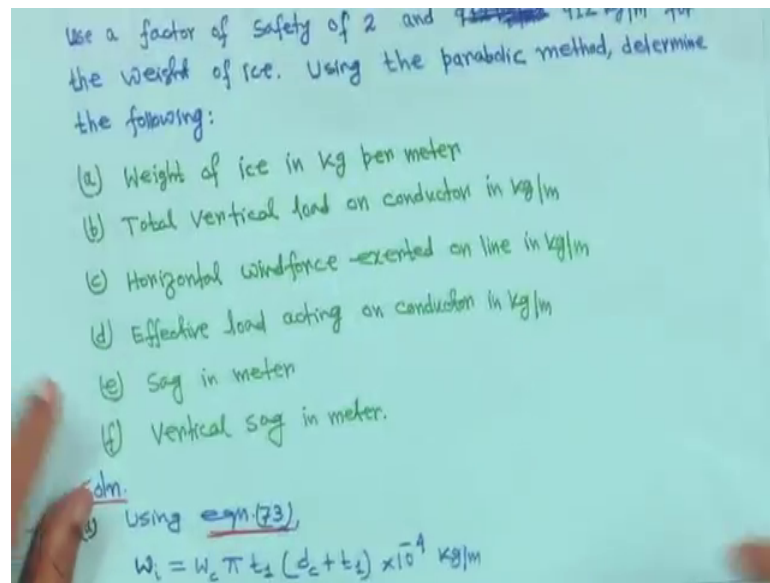 use a factor of safety of 2 and 912 kg/m for
the weight of ice. Using the parabolic method, determine
the following:
(a) Weight of ice in kg per meter
(b) Total vertical load on conductor in kg/m
(c) Horizontal windforce exerted on line in kg/m
(d) Effective load acting on conductor in kg/m
(e) Sag in meter
(f) Vertical sag in meter.
Soln.
Using eqn.(73),
Wi = Wc π t1 (dc + t1) ×10⁻⁴ kg/m